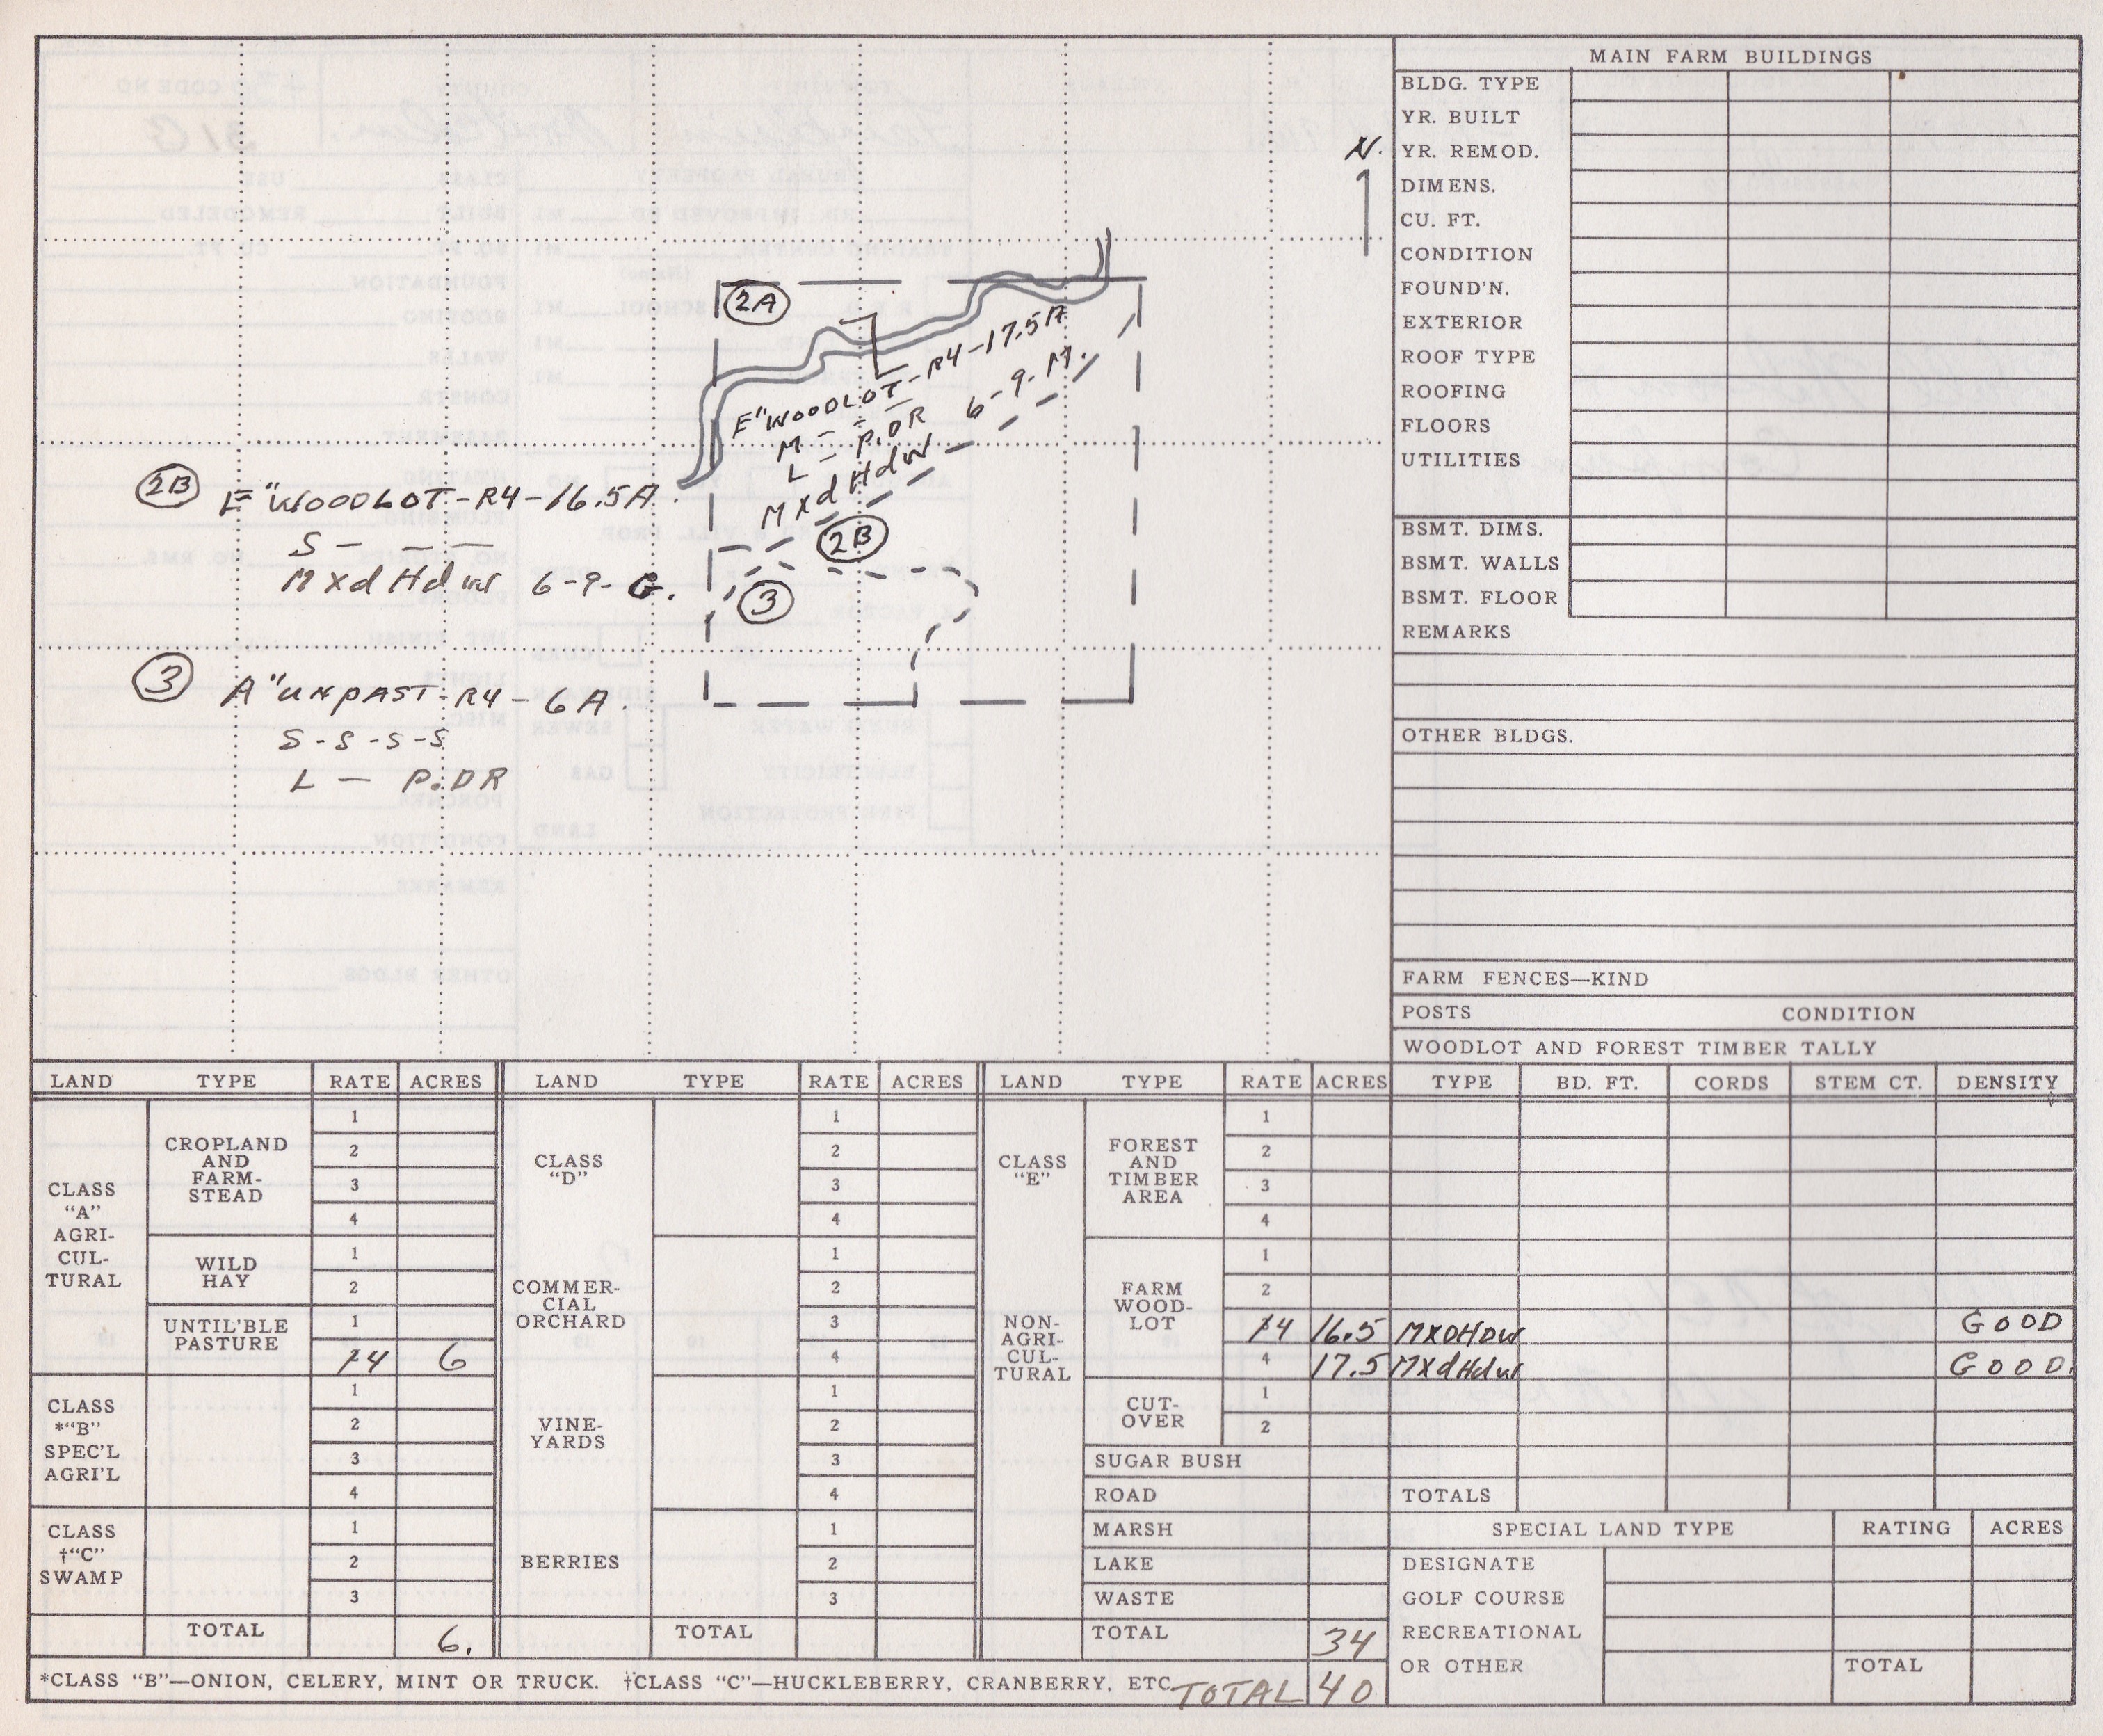 MAIN FARM BUILDINGS
BLDG. TYPE
YR. BUILT
N.
YR. REMOD.
DIMENS.
CU. FT.
CONDITION
FOUND'N.
EXTERIOR
ROOF TYPE
ROOFING
FLOORS
UTILITIES
BSMT. DIMS.
BSMT. WALLS
BSMT. FLOOR
REMARKS
OTHER BLDGS.
FARM FENCES—KIND
POSTS CONDITION
WOODLOT AND FOREST TIMBER TALLY
2A
E"WOODLOT-R4-17.5A
M - - - 6-9-M.
L - P.DR
MxdHdw
2B
3
2B E"WOODLOT-R4-16.5A.
S - - -
MxdHdw 6-9-G.
3 A"UNPAST-R4-6A.
S-S-S-S
L - P.DR
LAND TYPE RATE ACRES LAND TYPE RATE ACRES LAND TYPE RATE ACRES TYPE BD. FT. CORDS STEM CT. DENSITY
CLASS
"A"
AGRI-
CUL-
TURAL
CROPLAND
AND
FARM-
STEAD
1
2
3
4
WILD
HAY
1
2
UNTIL'BLE
PASTURE
1
4 6
CLASS
*"B"
SPEC'L
AGRI'L
1
2
3
4
CLASS
†"C"
SWAMP
1
2
3
TOTAL 6.
CLASS
"D"
1
2
3
4
COMMER-
CIAL
ORCHARD
1
2
3
4
VINE-
YARDS
1
2
3
4
BERRIES
1
2
3
TOTAL
CLASS
"E"
NON-
AGRI-
CUL-
TURAL
FOREST
AND
TIMBER
AREA
1
2
3
4
FARM
WOOD-
LOT
1
2
4 16.5 MXDHDW GOOD
4 17.5 MXdHdw GOOD.
CUT-
OVER
1
2
SUGAR BUSH
ROAD
MARSH
LAKE
WASTE
TOTAL 34
TOTALS
SPECIAL LAND TYPE RATING ACRES
DESIGNATE
GOLF COURSE
RECREATIONAL
OR OTHER TOTAL
*CLASS "B"—ONION, CELERY, MINT OR TRUCK. †CLASS "C"—HUCKLEBERRY, CRANBERRY, ETC. TOTAL 40